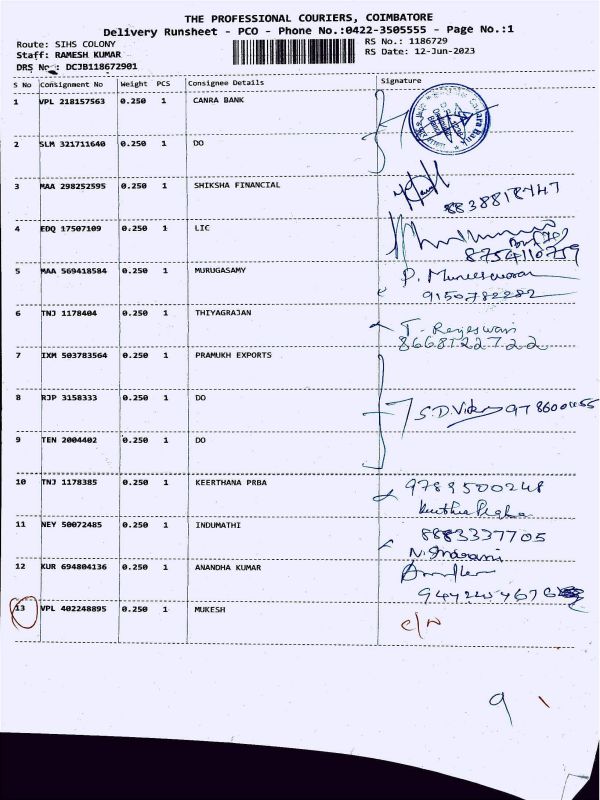 THE PROFESSIONAL COURIERS, COIMBATORE
Delivery Runsheet - PCO - Phone No.:0422-3505555 - Page No.:1
Route: SIHS COLONY RS No.: 1186729
Staff: RAMESH KUMAR RS Date: 12-Jun-2023
DRS No : DCJB118672901
S No Consignment No Weight PCS Consignee Details Signature
1 VPL 218157563 0.250 1 CANRA BANK
2 SLM 321711640 0.250 1 DO
3 MAA 298252595 0.250 1 SHIKSHA FINANCIAL
8838818747
4 EDQ 17507109 0.250 1 LIC
8754110759
5 MAA 569418584 0.250 1 MURUGASAMY P. Muneeswaran
9150782282
6 TNJ 1178404 0.250 1 THIYAGRAJAN T. Rajeswari
8668122722
7 IXM 503783564 0.250 1 PRAMUKH EXPORTS
8 RJP 3158333 0.250 1 DO S.D.
9 TEN 2004402 0.250 1 DO
10 TNJ 1178385 0.250 1 KEERTHANA PRBA 9789500248
11 NEY 50072485 0.250 1 INDUMATHI 8883337705
12 KUR 694804136 0.250 1 ANANDHA KUMAR
13 VPL 402248895 0.250 1 MUKESH C/N
9